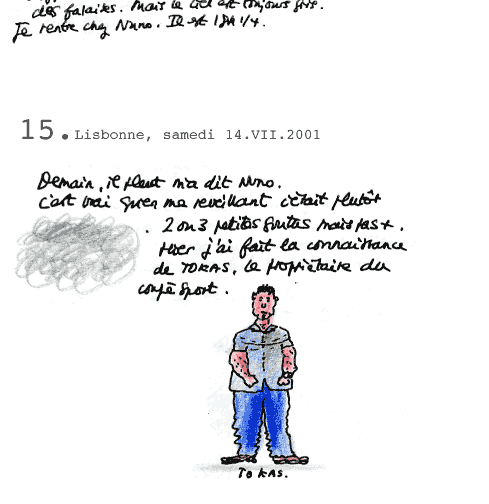 des falaises. Mais le ciel est toujours gris.
Je rentre chez Nuno. Il est 18h 1/4.
15. Lisbonne, samedi 14.VII.2001
Demain, il pleut m'a dit Nuno.
C'est vrai qu'en me reveillant c'était plutôt
2 ou 3 petites gouttes mais pas +.
Hier j'ai fait la connaissance
de TOKAS, le propriétaire du
coupé sport.
TOKAS.